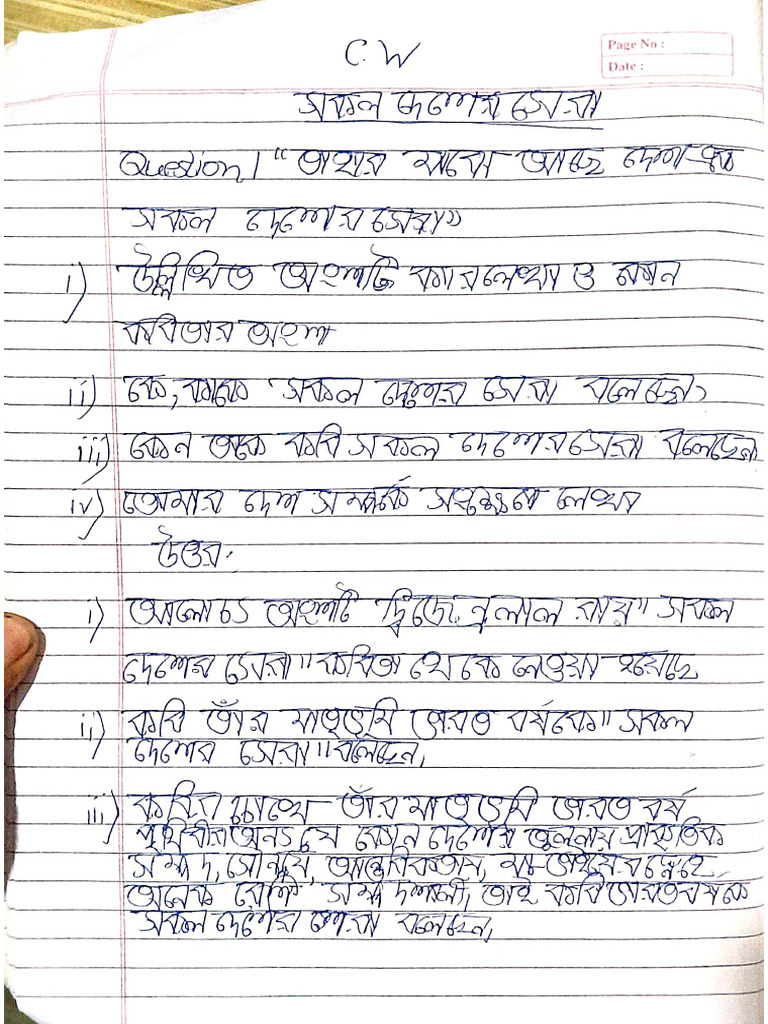 C.W
Page No :
Date :
সকল দেশের সেরা
Question 1 "তাহার মাঝে আছে দেশ এক
সকল দেশের সেরা"
i) উল্লিখিত অংশটি কার লেখা ও কোন
কবিতার অংশ
ii) কে, কাকে 'সকল দেশের সেরা বলেছেন?
iii) কেন তাকে কবি সকল দেশের সেরা বলেছেন
iv) তোমার দেশ সম্পর্কে সংক্ষেপে লেখা
উত্তর:
i) আলোচ্য অংশটি দ্বিজেন্দ্রলাল রায় "সকল
দেশের সেরা" কবিতা থেকে নেওয়া হয়েছে
ii) কবি তাঁর মাতৃভূমি ভারত বর্ষকে "সকল
দেশের সেরা" বলেছেন,
iii) কবির চোখে তাঁর মাতৃভূমি ভারত বর্ষ
পৃথিবীর অন্য যে কোন দেশের তুলনায় প্রাকৃতিক
সম্পদ, সৌন্দর্য, আন্তরিকতায়, মা-ভাইয়ের স্নেহে
অনেক বেশি সম্পদশালী, তাই কবি ভারতবর্ষকে
সকল দেশের সেরা বলেছেন,